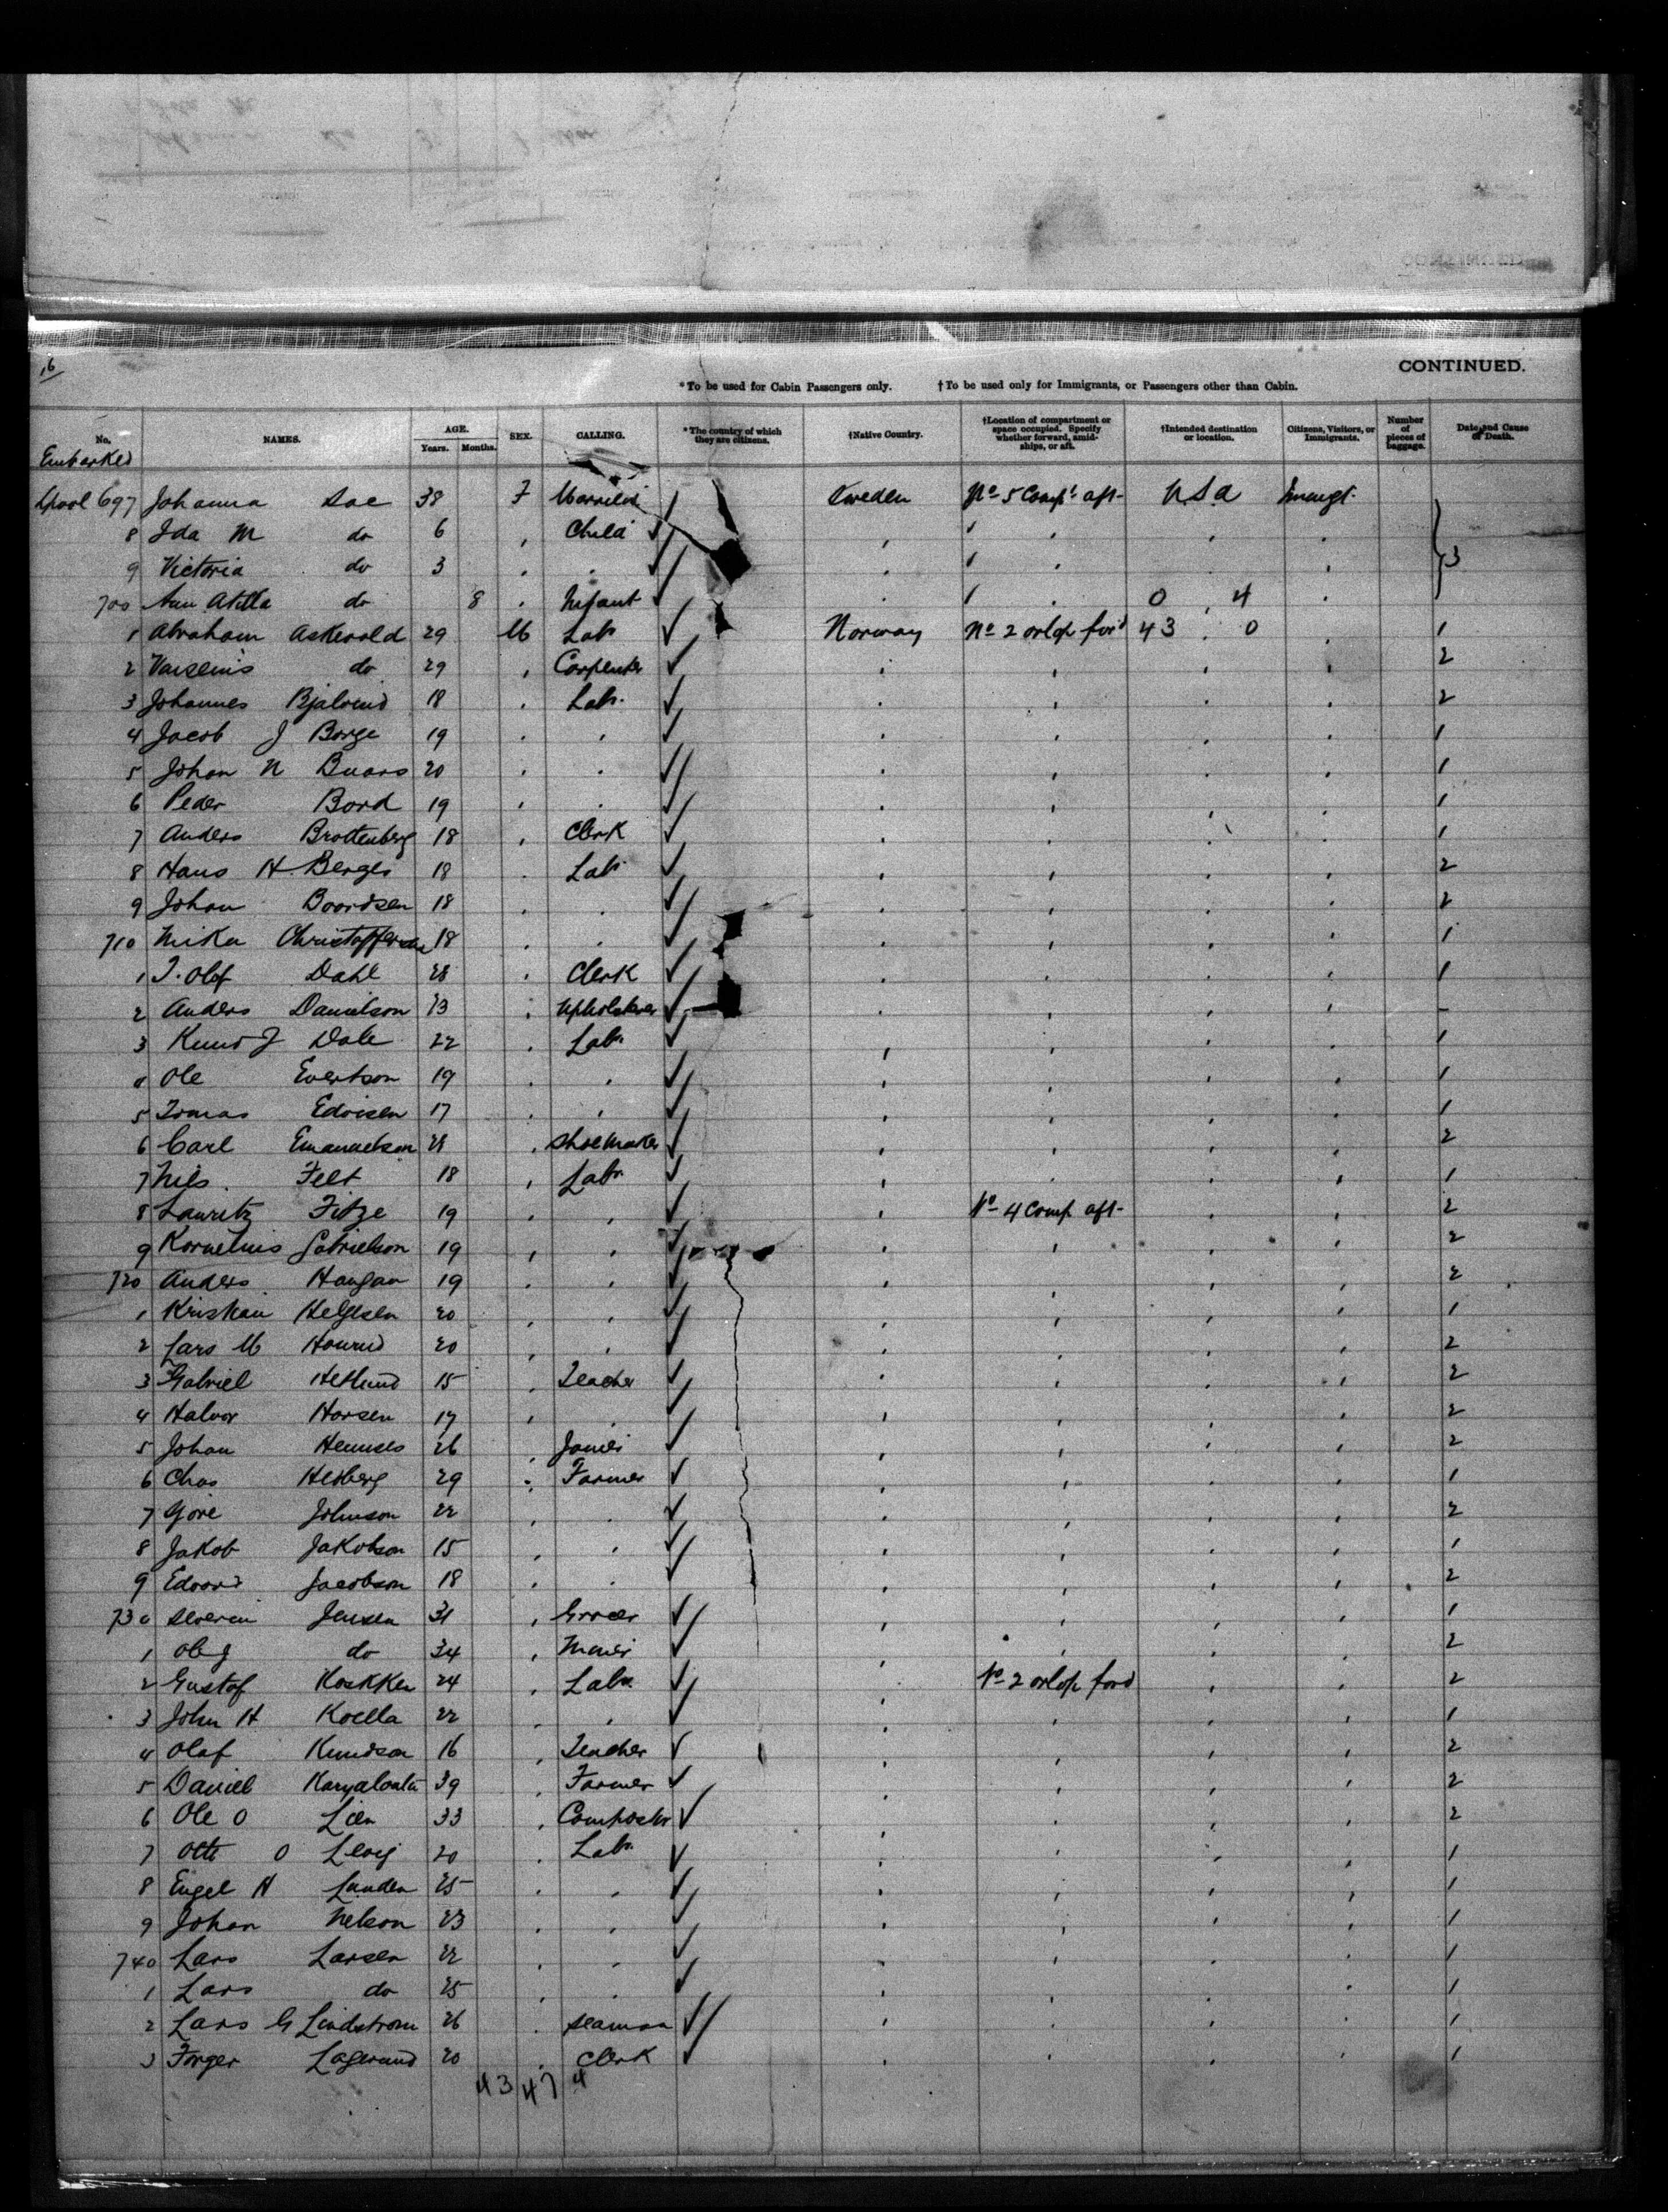 16
CONTINUED.
*To be used for Cabin Passengers only. †To be used only for Immigrants, or Passengers other than Cabin.
No. NAMES. AGE. Years. Months. SEX. CALLING. *The country of which they are citizens. †Native Country. †Location of compartment or space occupied. Specify whether forward, amidships, or aft. †Intended destination or location. Citizens, Visitors, or Immigrants. Number of pieces of baggage. Date and Cause of Death.
Embarked
Lpool 697 Johanna 38 F Sweden No 5 Compt aft U.S.a
8 Ida M do 6 Child
9 Victoria do 3 3
700 do 8 Infant 0 4
1 Abraham Askevold 29 M Lab Norway No 2 orlop for'd 43 0 1
2 do 29 Carpenter 2
3 Johannes 18 Lab 2
4 Jacob J Borge 19 1
5 Johan N Buars 20 1
6 Peder Bord 19 1
7 Anders Brottenberg 18 Clerk 1
8 Hans H Berges 18 Lab 2
9 Johan Boordsen 18 2
710 Christoffersen 18 1
1 T. Olof Dahl 28 Clerk 1
2 Anders Danielson 23 Upholsterer -
3 Knud J Dale 22 Lab 1
4 Ole Evertson 19 1
5 Tomas 17 1
6 Carl Emanuelson 28 Shoemaker 2
7 Nils Felt 18 Lab 1
8 Lauritz Fitze 19 No 4 Comp aft 2
9 Kornelius Gabrielson 19 2
720 Anders Haugan 19 2
1 Kristian Helgesen 20 1
2 Lars M 20 2
3 Gabriel Hetlund 15 Teacher 2
4 Halvor Horsen 17 2
5 Johan 26 2
6 Chas Hedberg 29 Farmer 1
7 Gore Johnson 22 2
8 Jakob Jakobson 15 1
9 Edvard Jacobson 18 2
730 Severin Jensen 31 Grocer 1
1 Ole J do 34 2
2 Gustof Koskken 24 Lab No 2 orlop ford 2
3 John H Koella 22 1
4 Olaf Knudson 16 Teacher 2
5 Daniel 39 Farmer 2
6 Ole O Lien 33 Compositor 2
7 Otto O 20 Lab 1
8 Engel H Lunden 25 1
9 Johan Nelson 23 1
740 Lars Larsen 22 1
1 Lars do 25 1
2 Lars G Lindstrom 26 Seaman 1
3 Lagerund 20 Clerk 1
43 47 4